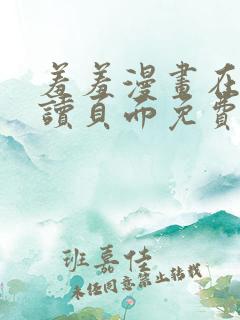 羞羞漫畫在
讀頁面免費
班嘉佳
未经同意禁止转载